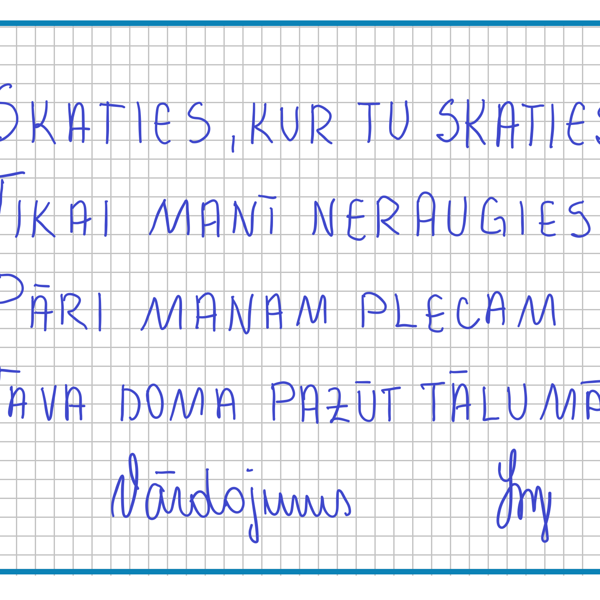 SKATIES, KUR TU SKATIES
TIKAI MANĪ NERAUGIES
PĀRI MANAM PLECAM
TAVA DOMA PAZŪT TĀLUMĀ
Vārdojumus